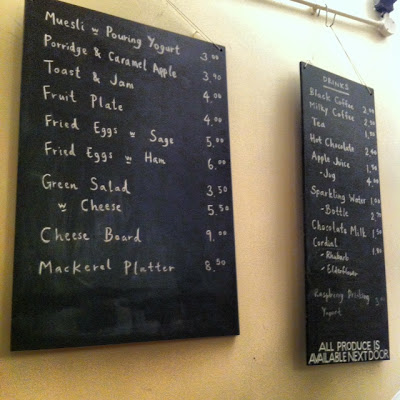 Muesli w Pouring Yogurt 3.00
Porridge & Caramel Apple 3.90
Toast & Jam 4.00
Fruit Plate 4.00
Fried Eggs w Sage 5.00
Fried Eggs w Ham 6.00
Green Salad 3.50
w Cheese 5.50
Cheese Board 9.00
Mackerel Platter 8.50
DRINKS
Black Coffee 2.00
Milky Coffee
Tea
Hot Chocolate 2.40
Apple Juice
- Jug 4.00
Sparkling Water
- Bottle
Chocolate Milk
Cordial
- Rhubarb
- Elderflower
Raspberry Drinking
Yogurt
ALL PRODUCE IS
AVAILABLE NEXT DOOR